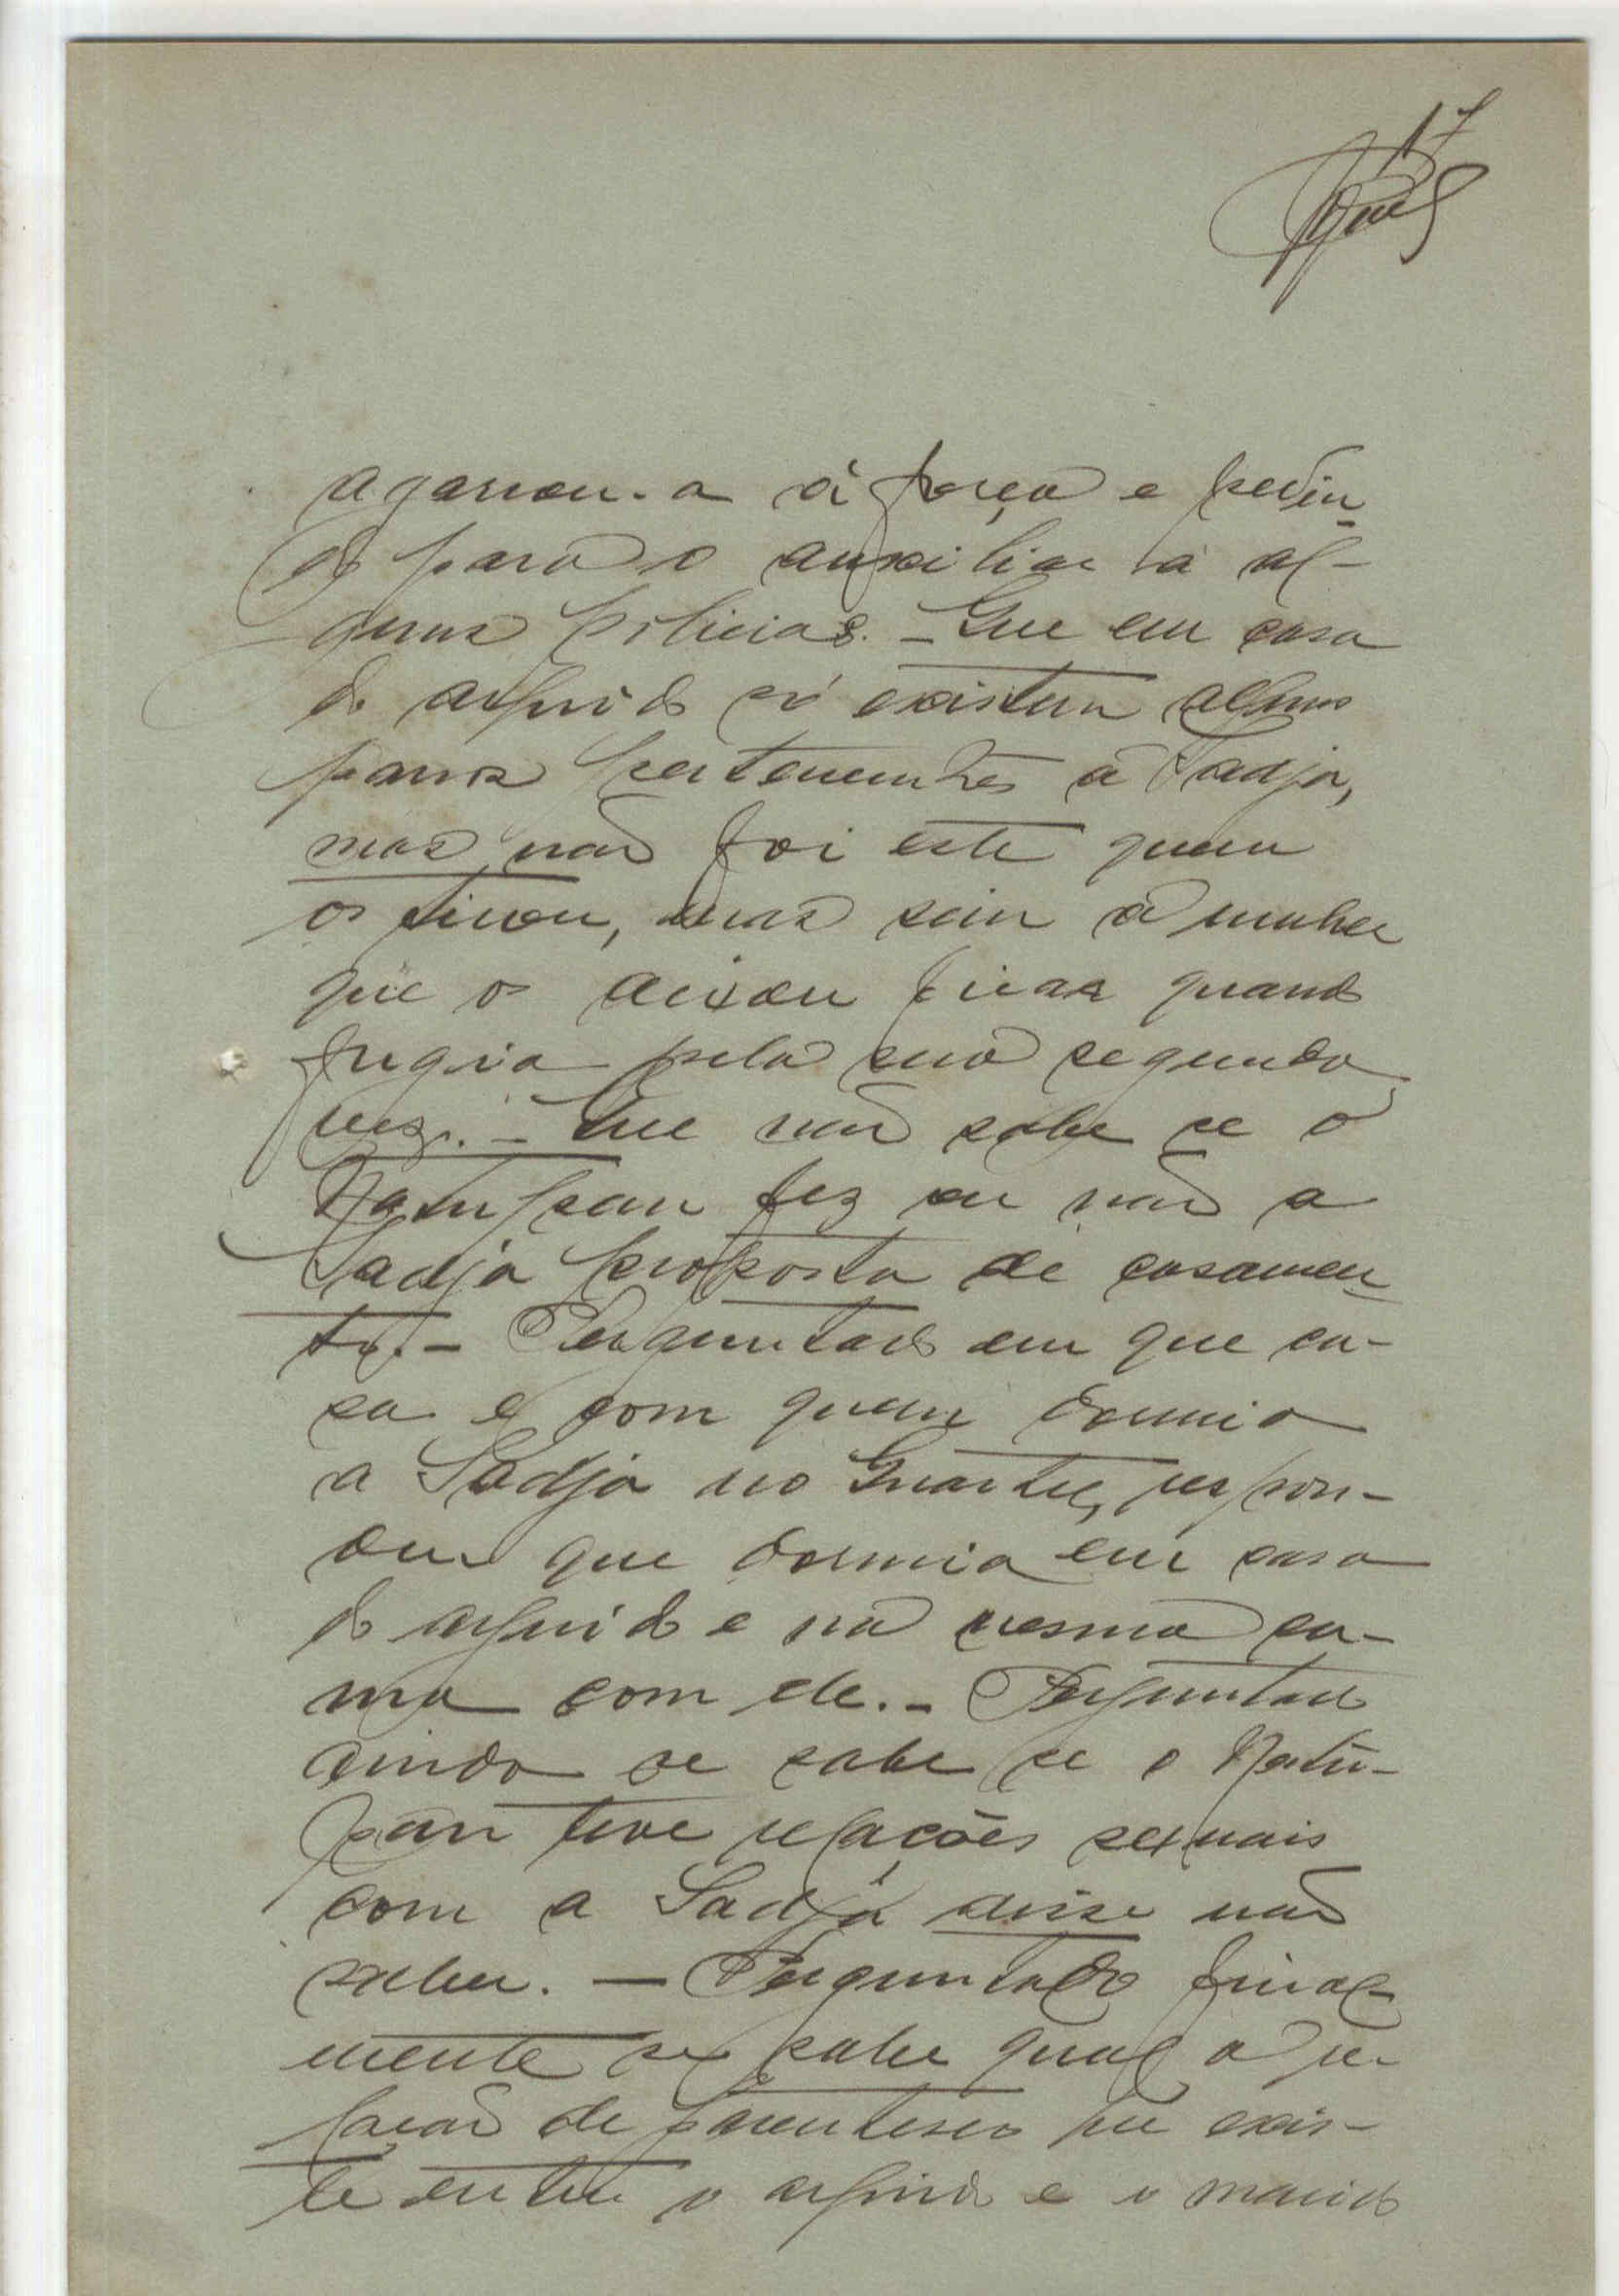 17
agarrou-a à força e pedin-
do para o auxiliar a al-
guns policias. - Que em casa
do arguido só existem alguns
panos pertencentes á Sadja,
mas não foi este quem
os tirou, mas sim a mulher
que os deixou ficar quando
fugia pela sua segunda
vez. - Que não sabe se o
Natupan fez ou não a
Sadja proposta de casamen-
to. - Perguntado em que ca-
sa e com quem dormia
a Sadja no Quartel, respon-
deu que dormia em casa
do arguido e na mesma ca-
ma com ele. - Perguntado
ainda se sabe se o Natu-
pan teve relações sexuais
com a Sadja disse não
saber. - Perguntado final-
mente se sabe qual a re-
lação de parentesco que exis-
te entre o arguido e o marido